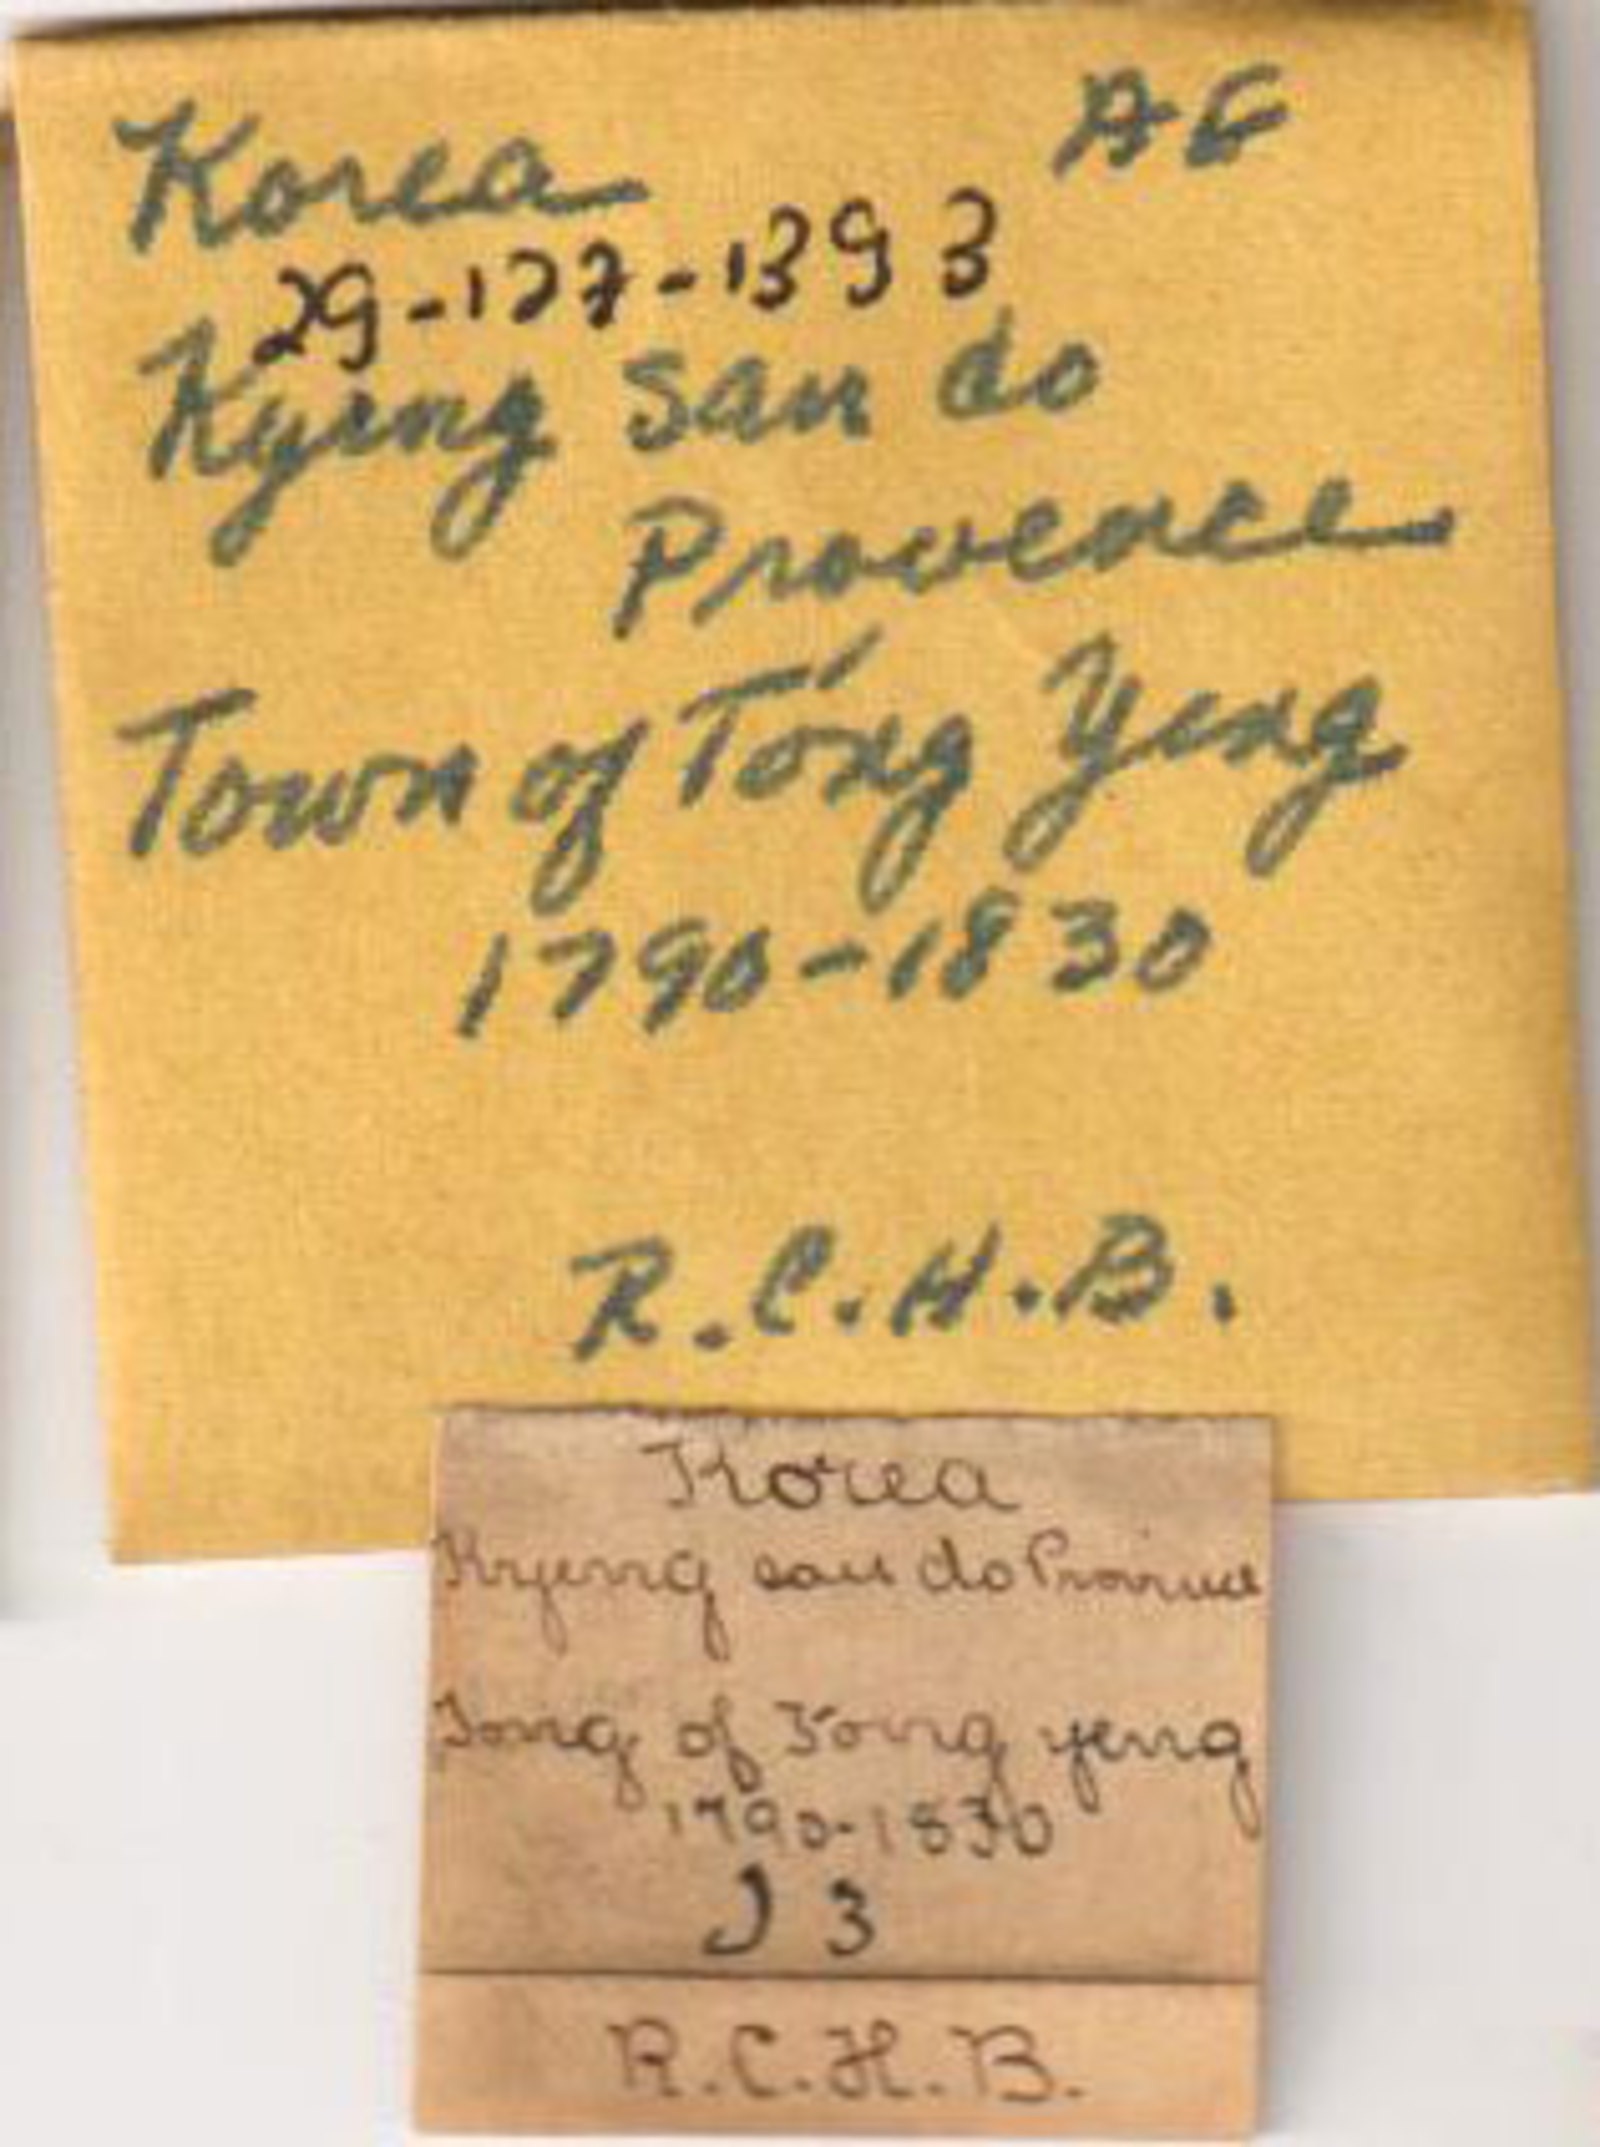 Korea AE
29-177-1393
Kyeng San do
Provence
Town of T'ong Yeng
1790-1830
R.C.H.B.
Korea
Kyeng san do Province
Tong of T'ong yeng
1790-1830
J 3
R.C.H.B.